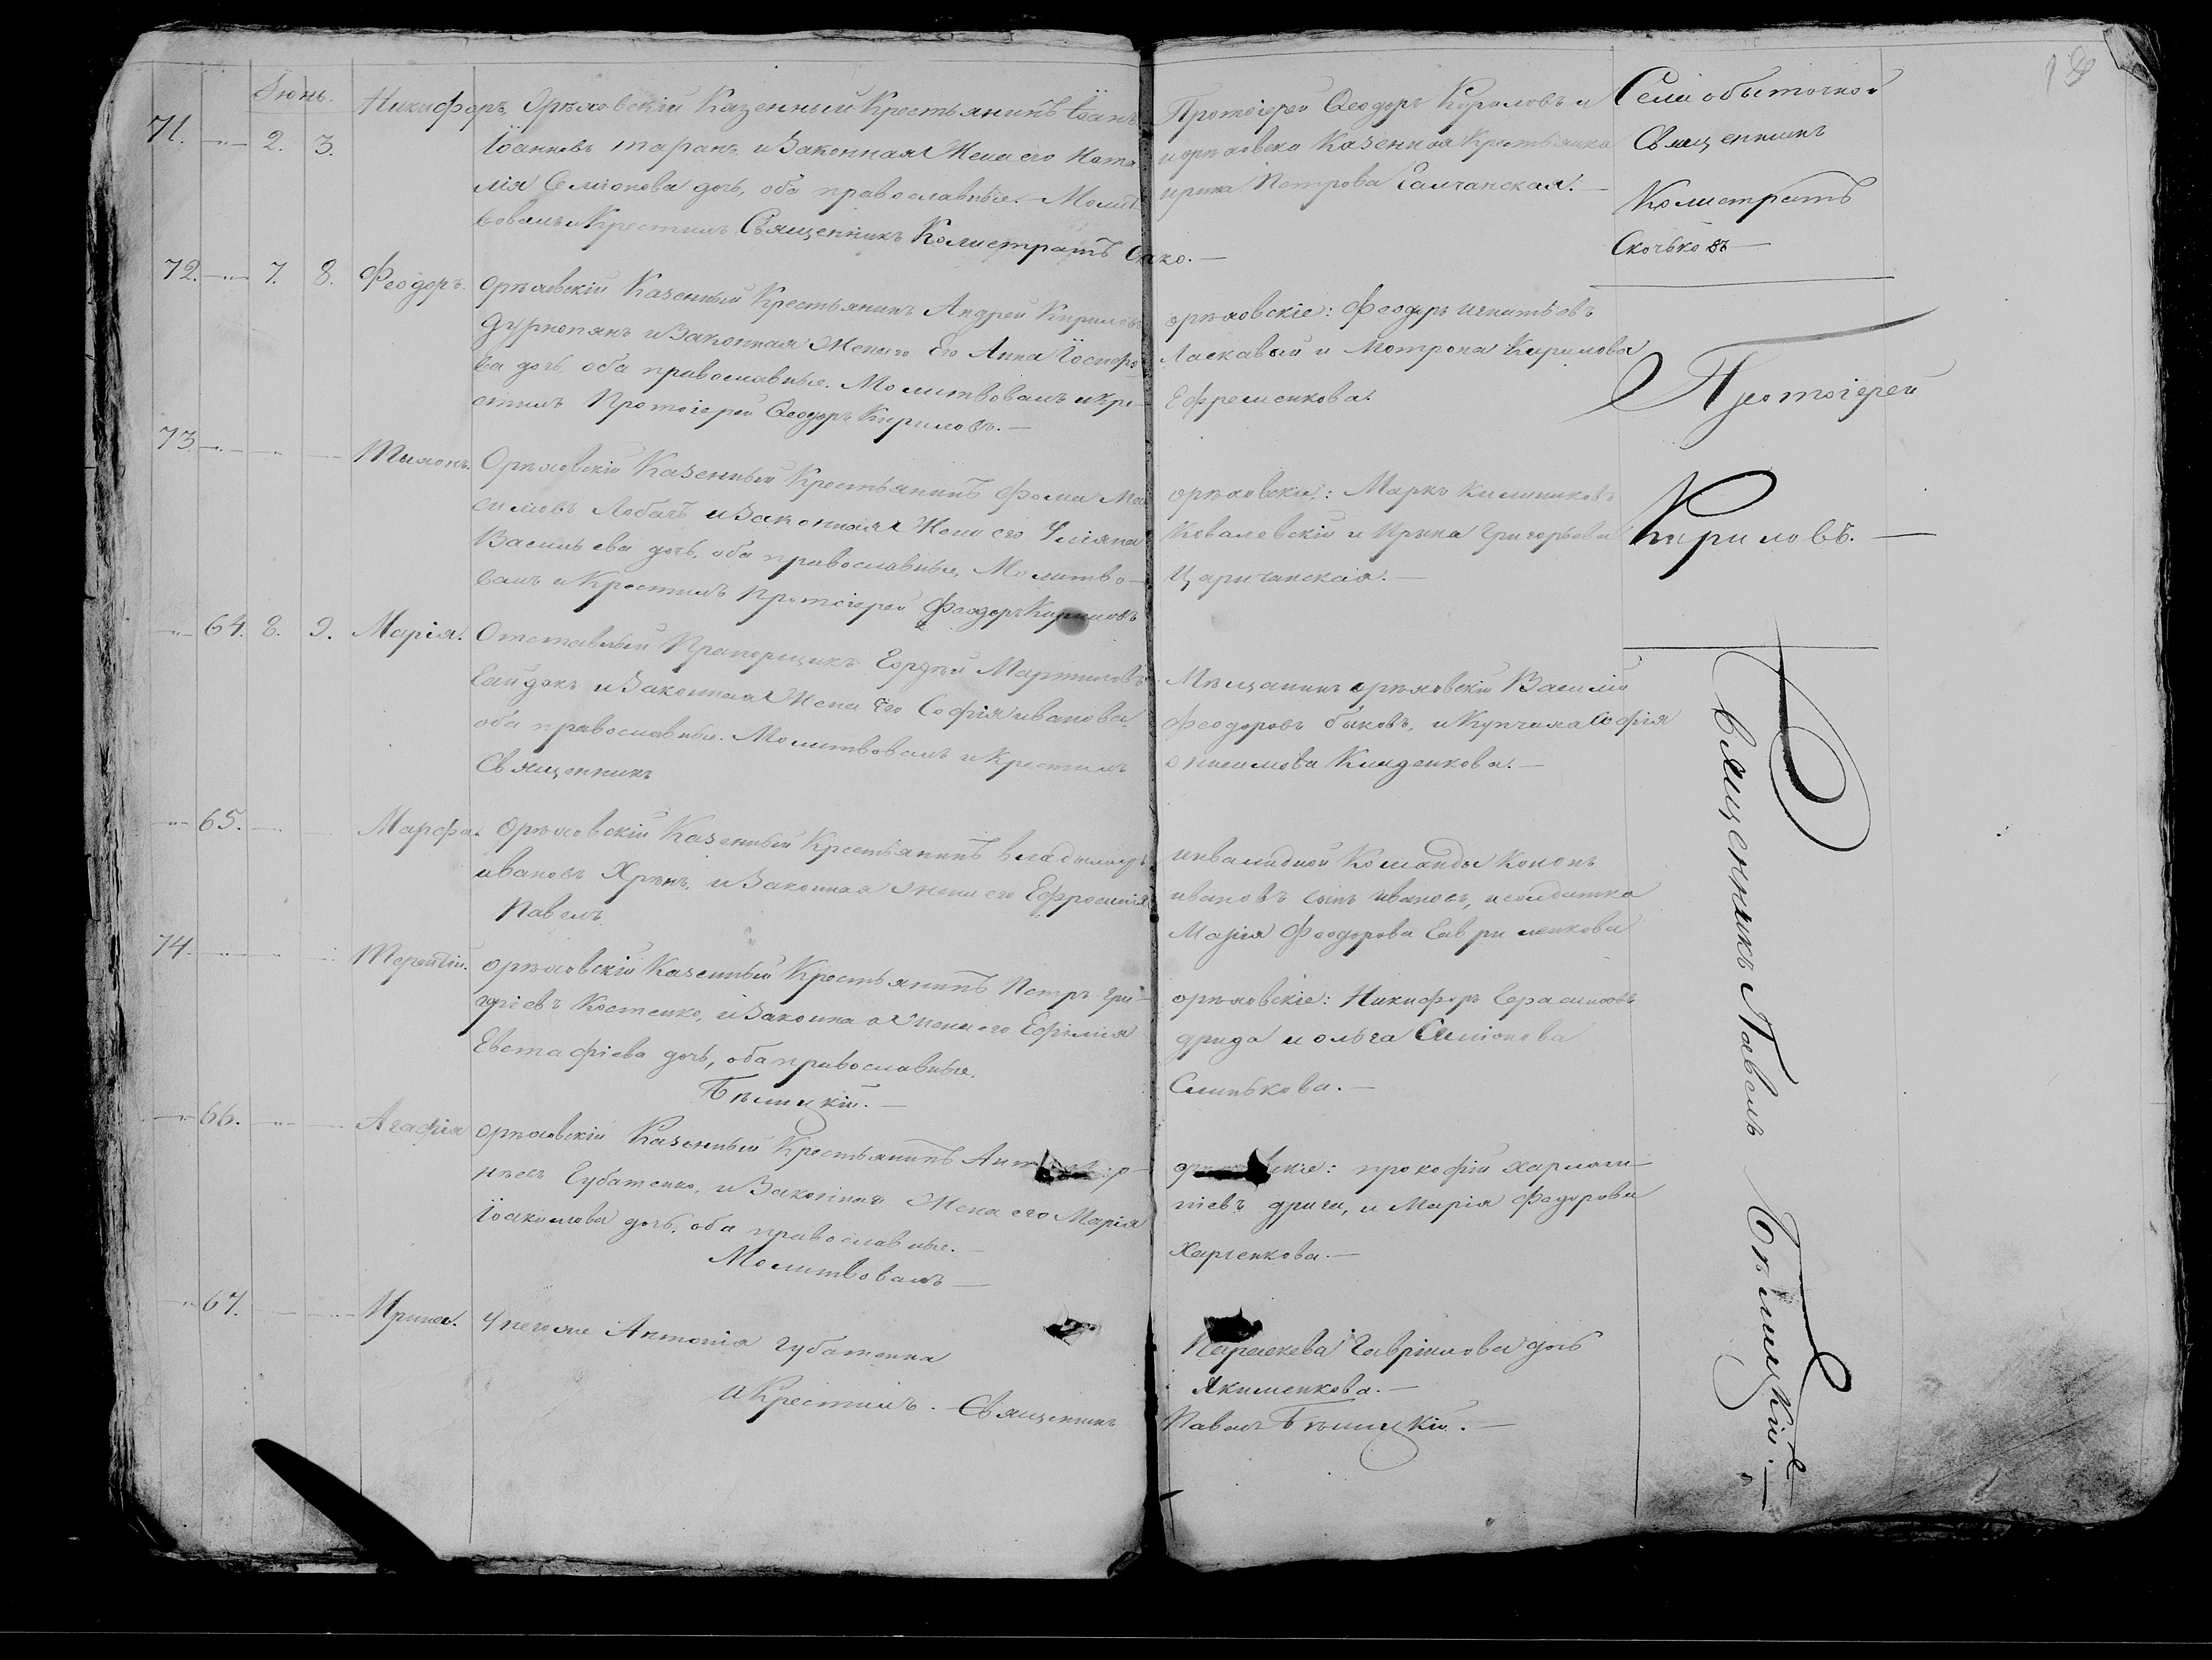 Іюнь.
71. 2. 3. Никифоръ. Орѣховскій Казенный Крестьянинъ Іоанъ
Іоанновъ таранъ и Законная Жена его Ната
лія Семіонова дочь, оба православные. – Молит
вовалъ и Крестилъ Священникъ Калистратъ Ско.
Протоіерей Ѳеодоръ Кириловъ и
и орѣховска Казенная Крестьянка
ирина Петрова Самчанская. –
Села обыточной
Священникъ
Калистратъ
Скочковъ –
72. 7. 8. Феодоръ. орѣховскій Казенный Крестьянинъ Андрей Кириловъ
Дурнопянъ и Законная Жена его Анна Іосифо
ва дочь, оба православные. Молитвовалъ и кре-
стилъ Протоіерей Ѳеодоръ Кириловъ. –
орѣховскіе: феодоръ игнатьевъ
Ласкавый и Мотрона Кирилова
Ефременкова.
Протоіерей
Кириловъ. –
73. Тихонъ. Орѣховскій Казенный Крестьянинъ фома Мак
симовъ Лобачъ и Законная Жена его Уліяна
Васильева дочь, оба православные, Молитво-
валъ и Крестилъ протоіерей Феодоръ Кириловъ
орѣховскіе: Марко
Ковалевскій и Ирина Григорьева
Царичанская. –
64. 8. 9. Марія. Отставный Прапорщикъ Гордѣй Мартиновъ
Гайдокъ и Законная Жена его Софія иванова
оба православные. Молитвовалъ и Крестилъ
Священникъ
Мѣщанинъ орѣховскій Василій
Феодоровъ быковъ, и Купчиха Софія
онисимова
65. Марфа. Орѣховскій Казенный Крестьянинъ владымиръ
ивановъ Хрѣнъ, и Законная жена его Ефросинія
Павелъ
инвалидной Команды Кононъ
ивановъ сынъ ивановъ, и солдатка
Марія Феодорова Гавриленкова
74. Терентій. орѣховскій Казенный Крестьянинъ Петръ Гри-
горіевъ Костенко, и Законная жена его Ефимія
Евстафіева дочь, оба православные.
Бѣлицкій. –
орѣховскіе: Никифоръ Герасимовъ
дрига и ольга Симіонова
Слинькова. –
66. Агафія орѣховскій Казенный Крестьянинъ
Губатенко, и Законная Жена его Марія
Іоакимова дочь, оба православные. –
Молитвовалъ –
прокофій харлам-
піевъ дрига, и Марія Федорова
Харченкова. –
67. Ирина. У него же Антонія губатенка
и Крестилъ. Священникъ
Параскева Гавріилова дочь
Якименкова. –
Павелъ Бѣлицкій. –
Священникъ Павелъ Бѣлицкій. –